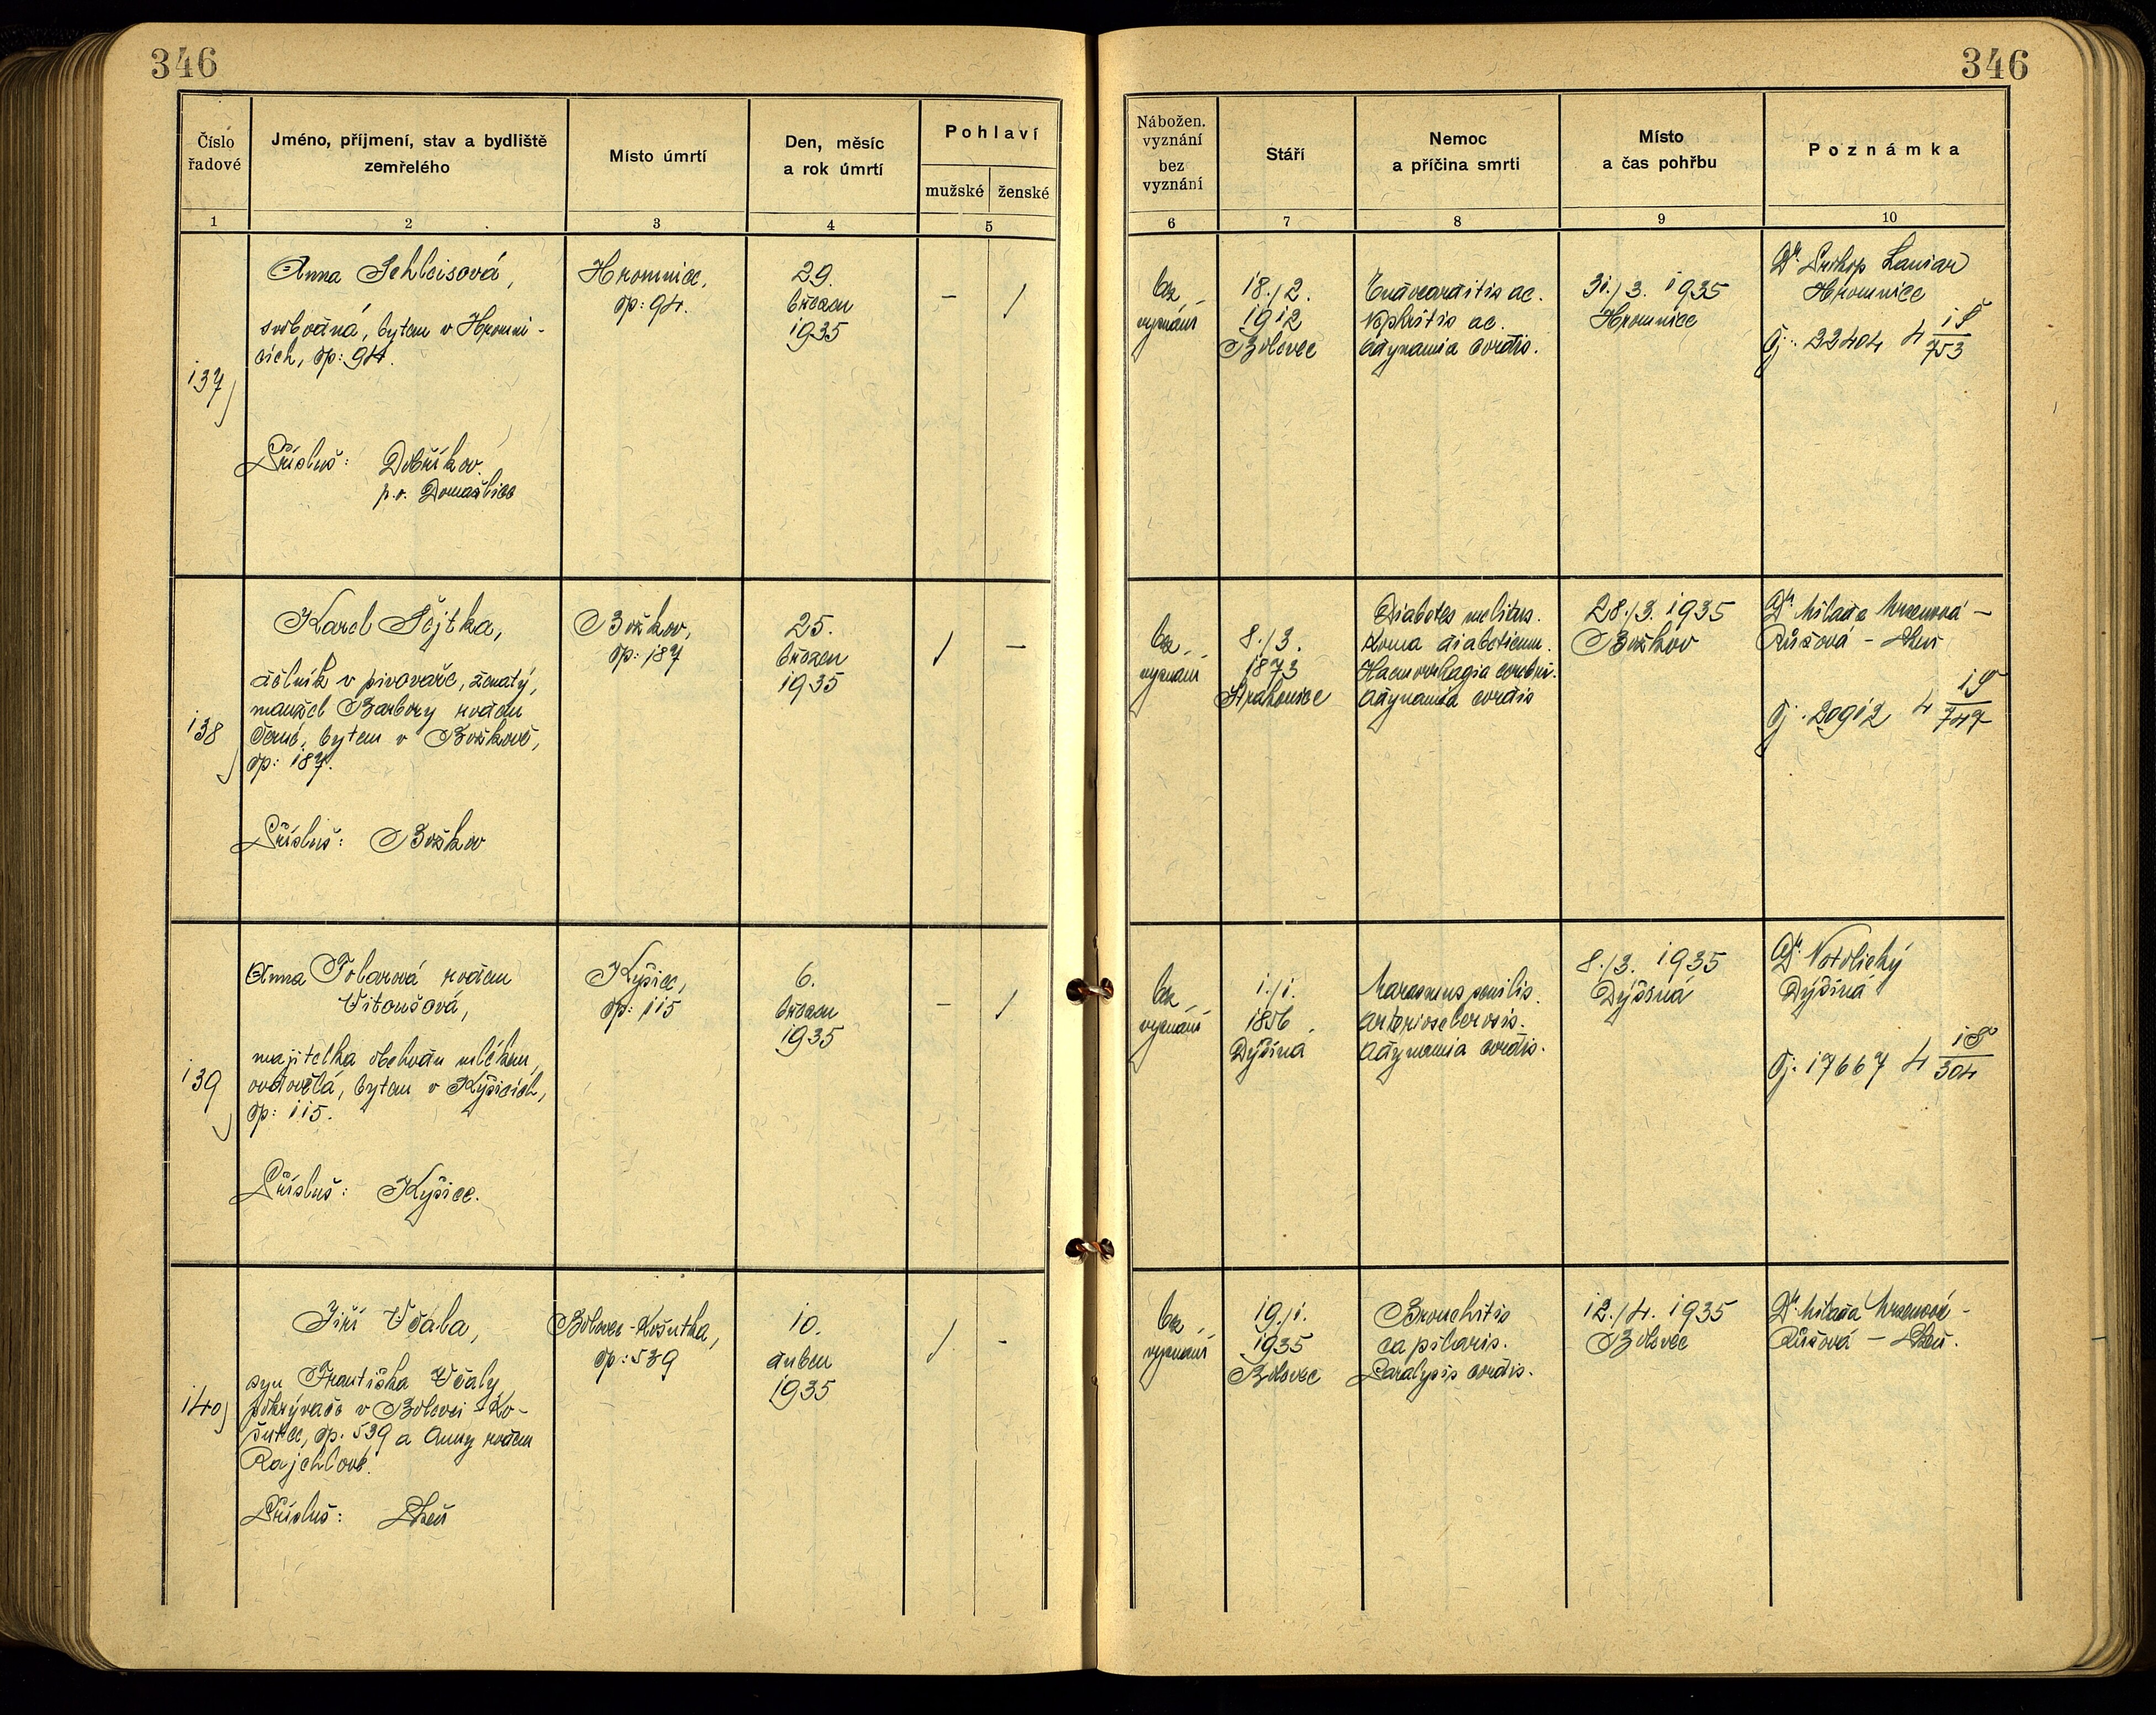 346
346
Číslo
řadové
Jméno, příjmení, stav a bydliště
zemřelého
Místo úmrtí
Den, měsíc
a rok úmrtí
Pohlaví
mužské
ženské
Nábožen.
vyznání
bez
vyznání
Stáří
Nemoc
a příčina smrti
Místo
a čas pohřbu
Poznámka
1
2
3
4
5
6
7
8
9
10
137
Anna Schleisová,
svobodná, bytem v Hromni-
cích, čp: 94.
Přísluš: Dobříkov
p.o. Domažlice
Hromnice,
čp: 94.
29.
březen
1935
bez
vyznání
18./2.
1912
Bolevec
Endocarditis ac.
Nephritis ac.
Adynamia cordis.
31./3. 1935
Hromnice
Dr. Prokop
Hromnice
čj: 22404 4 18/753
138
Karel Šejtka,
dělník v pivovaře, ženatý,
manžel Barbory rozen
Černé, bytem v Božkově,
čp: 187.
Přísluš: Božkov
Božkov,
čp: 187
25.
březen
1935
bez
vyznání
8./3.
1873
Strakonice
Diabetes melitus.
Koma diabeticum.
Haemorrhagia cerebri.
Adynamia cordis
28./3. 1935
Božkov
Dr. Milada
Růžová - Plzeň
čj. 20912 4 18/747
139
Anna Tolarová rozen
Vitoušová,
majitelka obchodu mlékem,
ovdovělá, bytem v Kyšicích,
čp: 115.
Přísluš: Kyšice.
Kyšice,
čp: 115
6.
březen
1935
bez
vyznání
1./1.
1856
Dýšina
Marasmus senilis.
Arteriosclerosis.
Adynamia cordis.
8./3. 1935
Dýšiná
Dr. Votolický
Dýšiná
čj. 17667 4 18/504
140
Jiří Včala,
syn Františka Včaly
pokrývače v Bolevci - Ko-
šutce, čp. 539 a Anny rozen
Rajchlové.
Přísluš: Plzeň
Bolevec-Košutka,
čp: 539
10.
duben
1935
bez
vyznání
19./1.
1935
Bolevec
Bronchitis
capilaris.
Paralysis cordis.
12./4. 1935
Bolevec
Dr. Milada
Růžová - Plzeň.